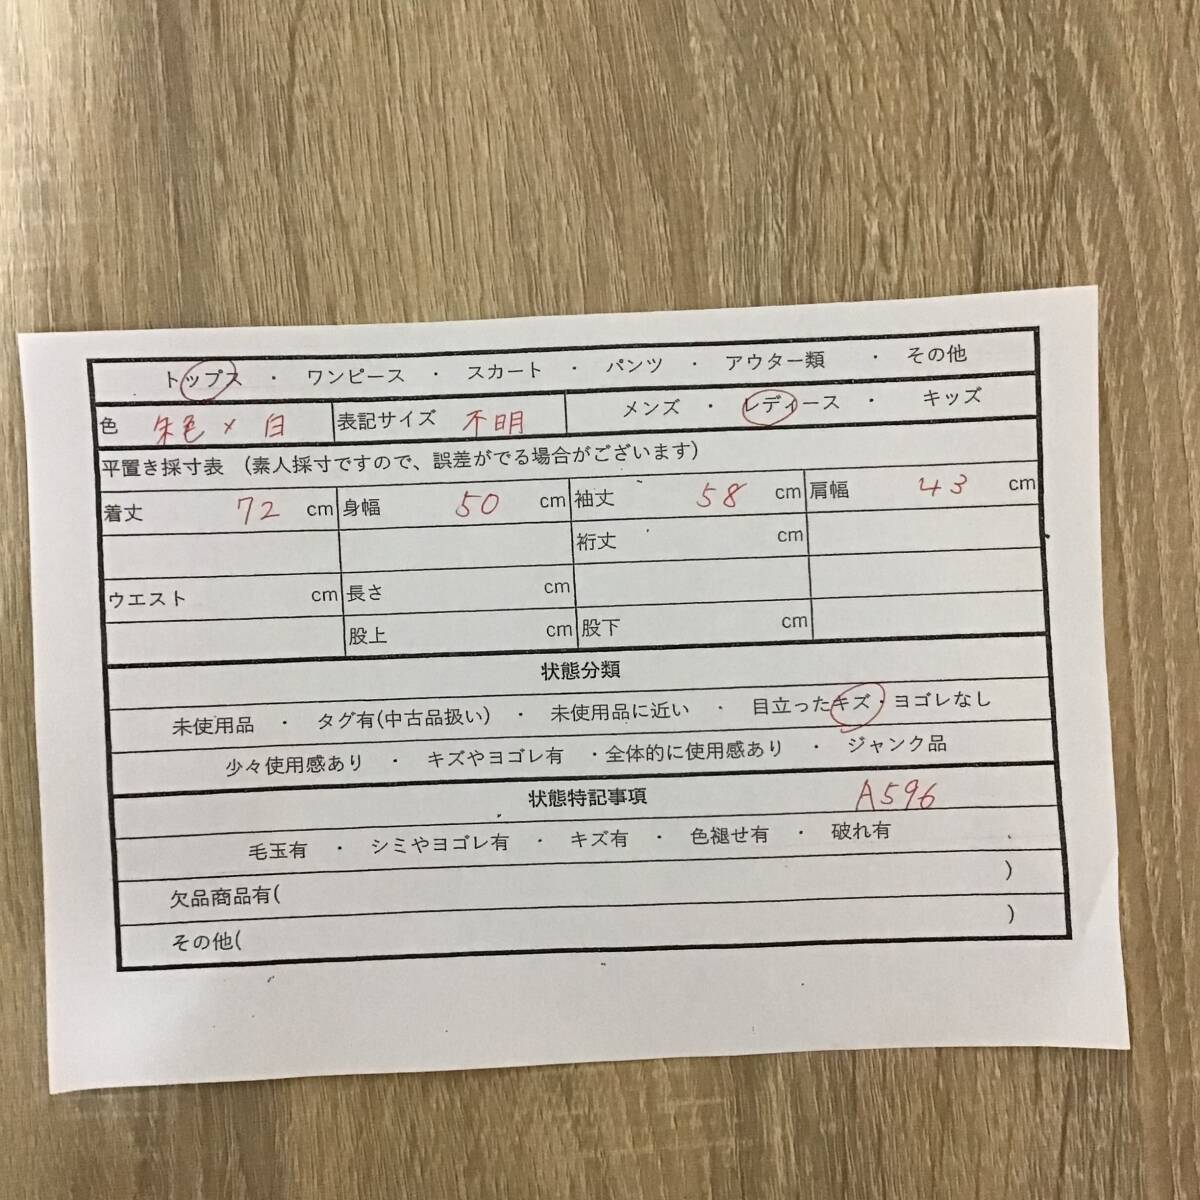 トップス ・ ワンピース ・ スカート ・ パンツ ・ アウター類 ・ その他
色 朱色×白 表記サイズ 不明 メンズ ・ レディース ・ キッズ
平置き採寸表 (素人採寸ですので、誤差がでる場合がございます)
着丈 72 cm 身幅 50 cm 袖丈 58 cm 肩幅 43 cm
裄丈 cm
ウエスト cm 長さ cm
股上 cm 股下 cm
状態分類
未使用品 ・ タグ有(中古品扱い) ・ 未使用品に近い ・ 目立ったキズ・ヨゴレなし
少々使用感あり ・ キズやヨゴレ有 ・全体的に使用感あり ・ ジャンク品
状態特記事項 A596
毛玉有 ・ シミやヨゴレ有 ・ キズ有 ・ 色褪せ有 ・ 破れ有
欠品商品有( )
その他( )